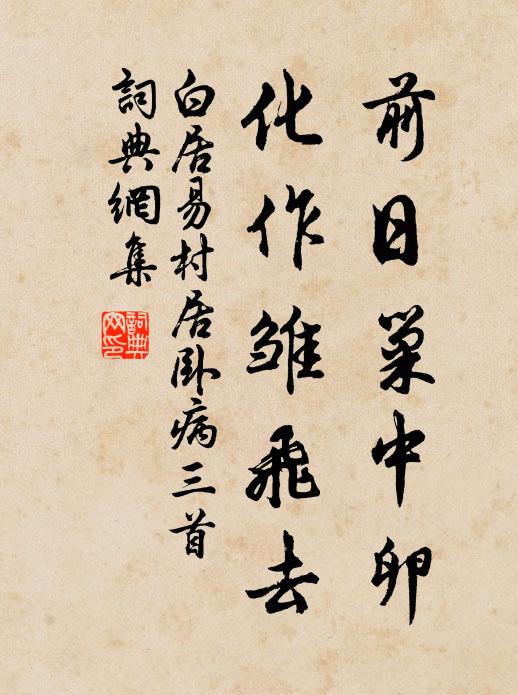 前日巢中卵
化作雛飛去
白居易村居卧病三首
詞典網集
詞典
网印